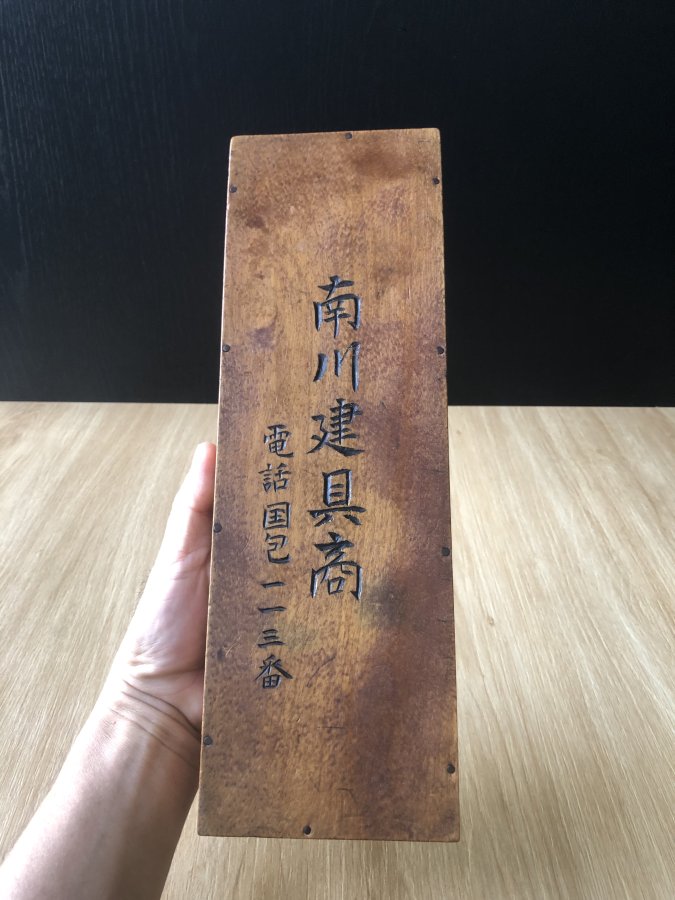 南川建具商
電話国包一一三番